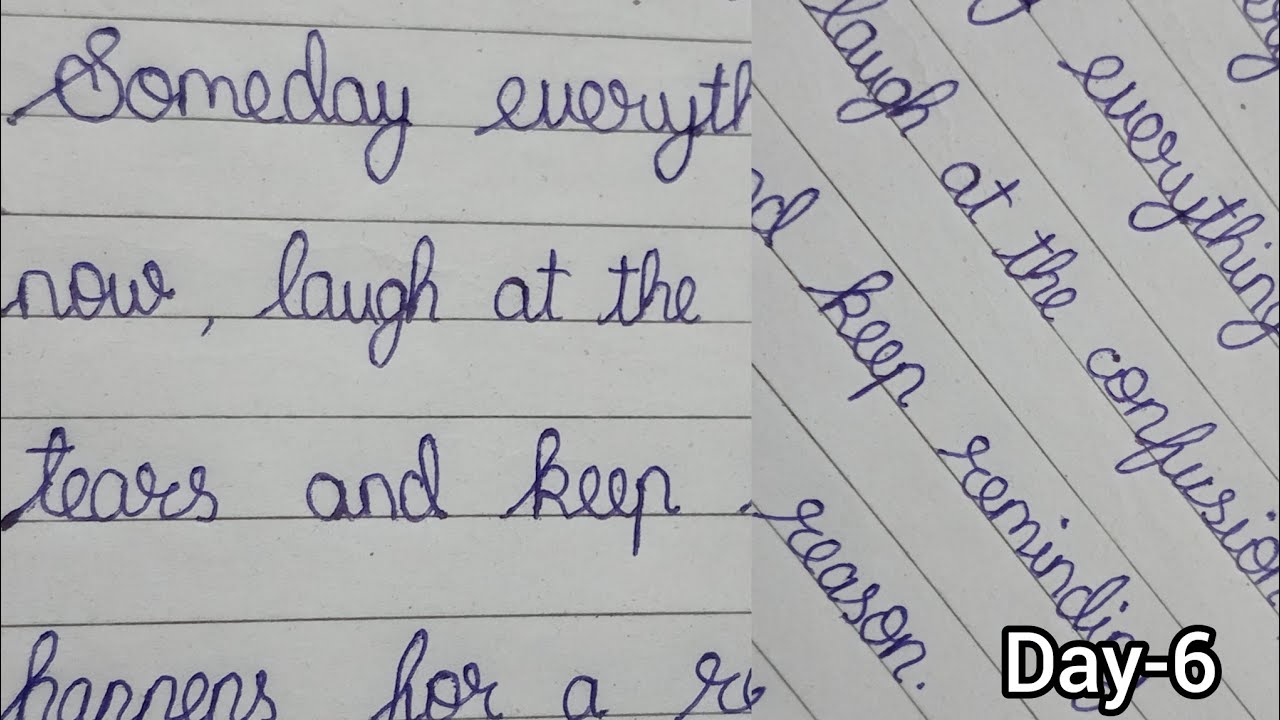 Someday everyth
now, laugh at the
tears and keep
happens for a re
everything
laugh at the confusion
keep reminding
reason.
Day-6